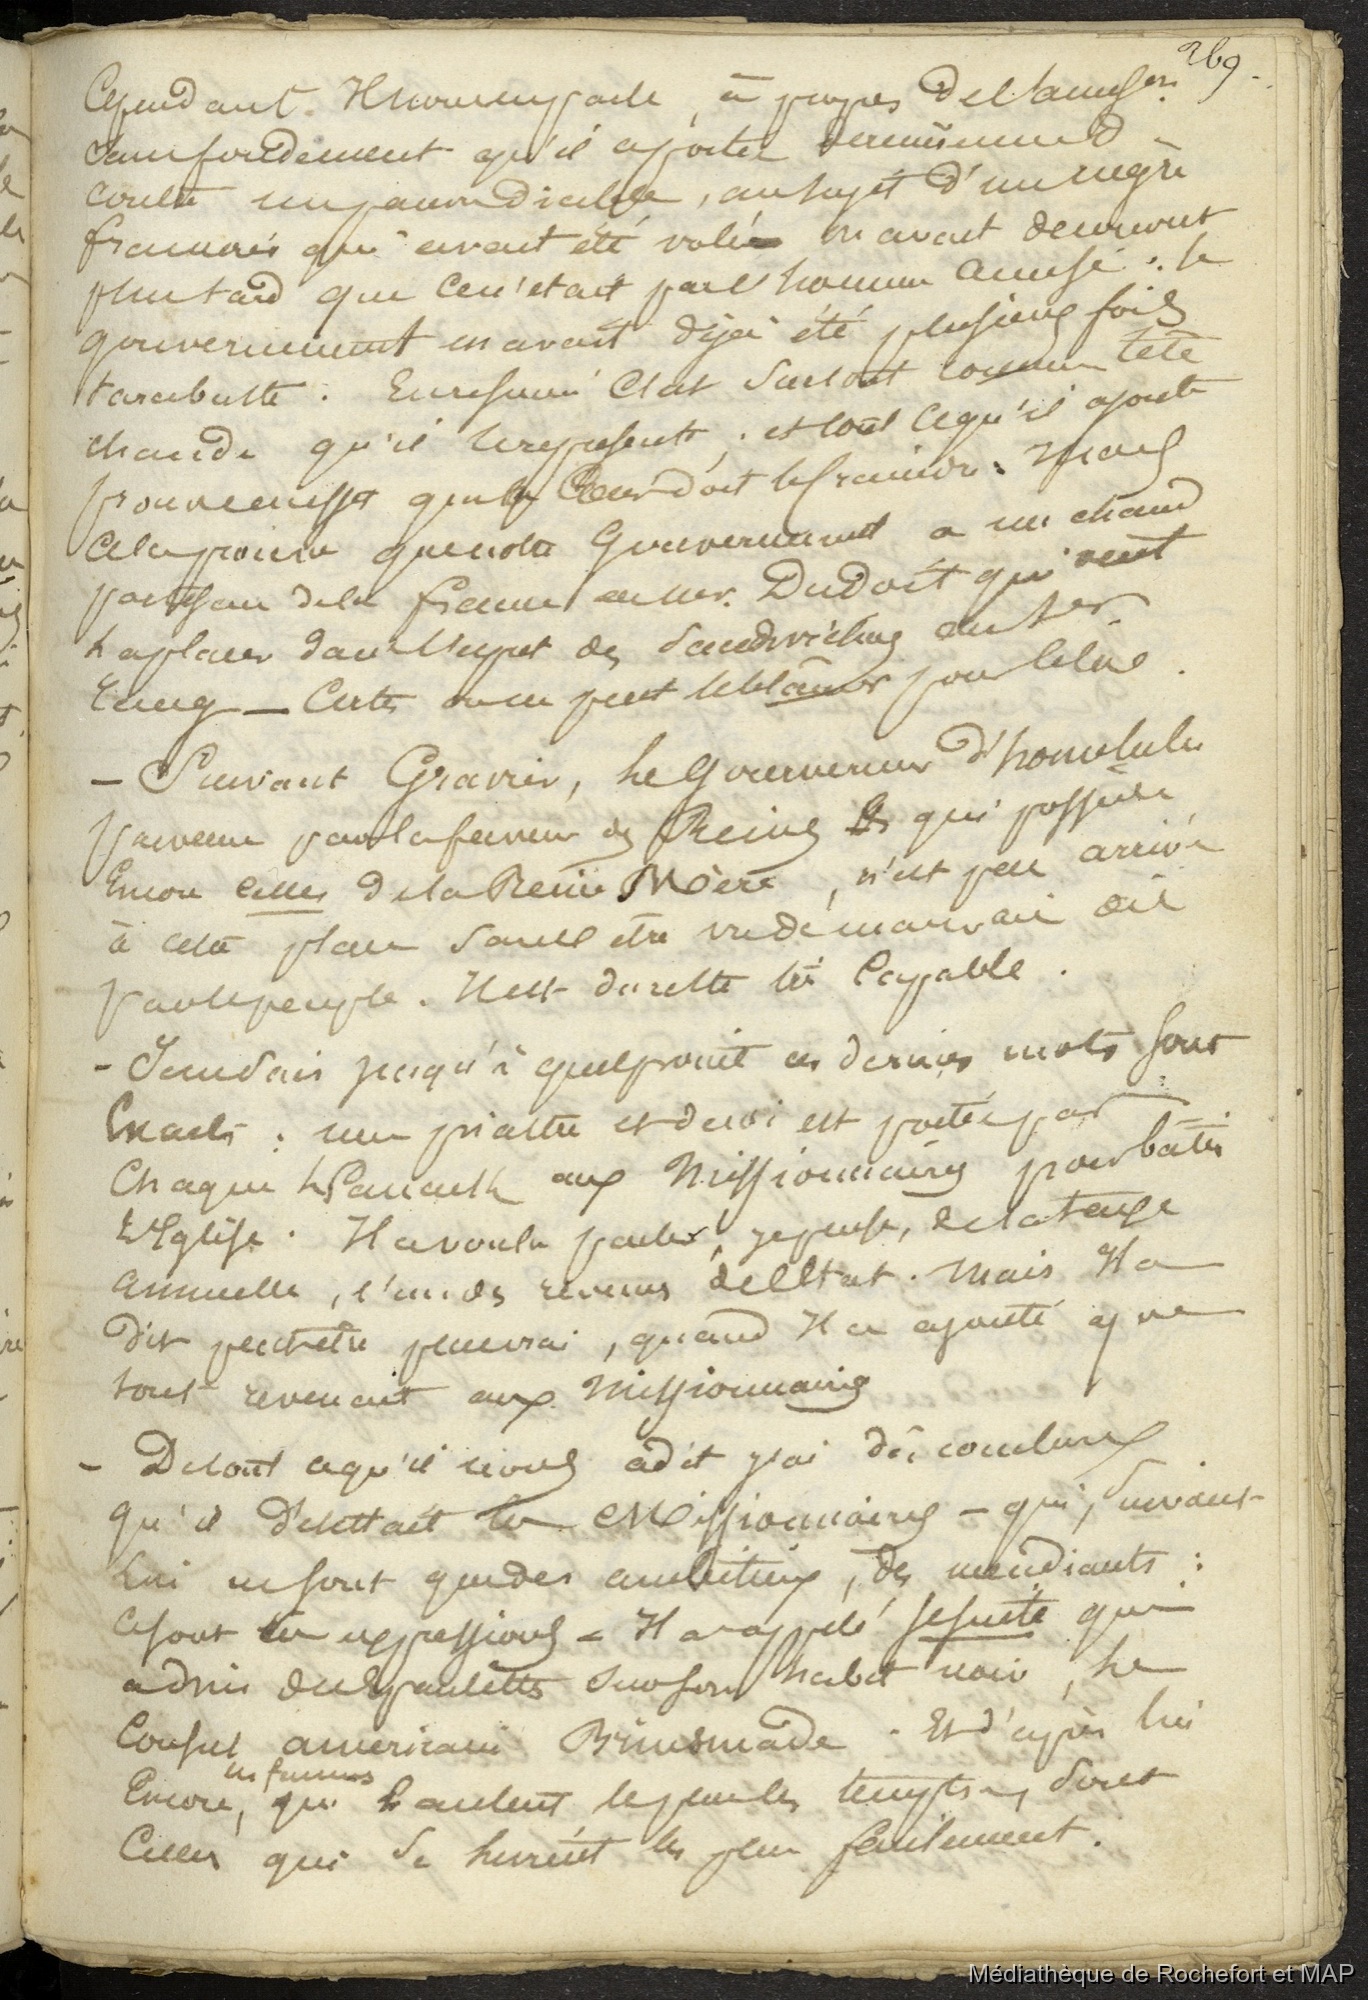 269.
Cependant. Il nous en parle, à propos de l'accusation
sans fondement qu'il a portée dernièrement
contre un pauvre diable, au sujet d'un nègre
français qui avait été volé. On avait découvert
plus tard que ce n'était pas l'homme accusé : le
gouvernement en avait déjà été plusieurs fois
tarabusté. En résumé c'est surtout comme tête
chaude qu'il le représente ; et tout ce qu'il ajoute
prouve aussi que le doit le craindre. Mais
cela prouve que notre Gouvernement a un chaud
partisan de la France en Mr. Dudoit qui veut
la placer dans l'esprit des Sandwichiens au 1er
rang — Certes on ne peut le blâmer pour cela.
— Suivant Gravier, le Gouverneur d'honolulu
parvenu par la faveur des Reines & qui possède
Encore celles de la Reine Mère, n'est pas arrivé
à cette place sans être vu de mauvais œil
par le peuple. Il est du reste très Capable.
- Je ne sais jusqu'à quel point ces derniers mots sont
Exacts : une piastre et demi est portée par
Chaque Kanack aux Missionnaires pour bâtir
L'Eglise. Il a voulu parler, je pense, de la taxe
annuelle, l'un des revenus de l'Etat. Mais Il a
dit peut être plus vrai, quand Il a ajouté que
tout revenait aux Missionnaires
- De tout ce qu'il nous a dit j'ai dû conclure
qu'il détestait les Missionnaires — qui, suivant
lui ne sont que des ambitieux, des mendiants :
ce sont ses expressions — Il a appelé Jesuite qui
a mis des Epaulettes sur son habit noir, le
Consul américain Brinsmade. Et d'après lui
Encore, les femmes qui hantent le plus les temples, sont
Celles qui se livrent le plus facilement.
Médiathèque de Rochefort et MAP